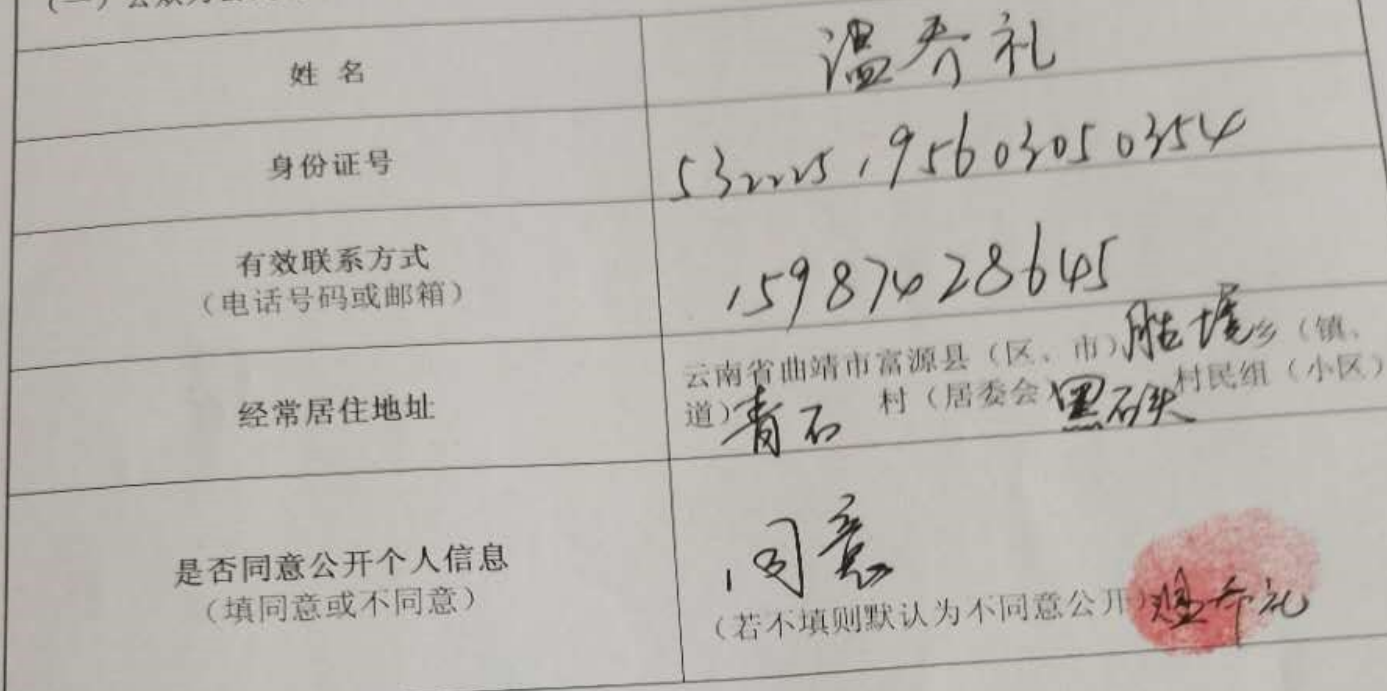 姓 名
温乔礼
身份证号
532225195603050354
有效联系方式
（电话号码或邮箱）
15987428645
经常居住地址
云南省曲靖市富源县（区、市）胜境乡（镇、
道）青石 村（居委会）黑石头 村民组（小区）
是否同意公开个人信息
（填同意或不同意）
同意
（若不填则默认为不同意公开）